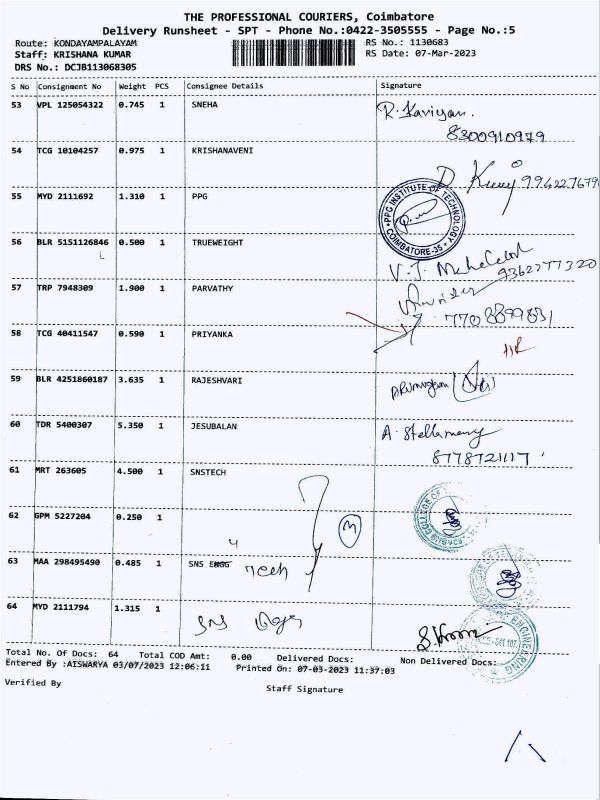 THE PROFESSIONAL COURIERS, Coimbatore
Delivery Runsheet - SPT - Phone No.:0422-3505555 - Page No.:5
Route: KONDAYAMPALAYAM
RS No.: 1130683
Staff: KRISHANA KUMAR
RS Date: 07-Mar-2023
DRS No.: DCJB113068305
S No Consignment No Weight PCS Consignee Details Signature
53 VPL 125054322 0.745 1 SNEHA R. Kaviyan.
8300910979
54 TCG 10104257 0.975 1 KRISHANAVENI
55 MYD 2111692 1.310 1 PPG
PPG INSTITUTE OF TECHNOLOGY
COIMBATORE-35
56 BLR 5151126846 0.500 1 TRUEWEIGHT
9362777320
57 TRP 7948309 1.900 1 PARVATHY
58 TCG 40411547 0.590 1 PRIYANKA
59 BLR 4251860187 3.635 1 RAJESHVARI
60 TDR 5400307 5.350 1 JESUBALAN A. Stellamary
8778721117
61 MRT 263605 4.500 1 SNSTECH
62 GPM 5227204 0.250 1
63 MAA 298495490 0.485 1 SNS ENGG Tech
64 MYD 2111794 1.315 1 SNS
Total No. Of Docs: 64 Total COD Amt: 0.00 Delivered Docs: Non Delivered Docs:
Entered By :AISWARYA 03/07/2023 12:06:11 Printed On: 07-03-2023 11:37:03
Verified By
Staff Signature